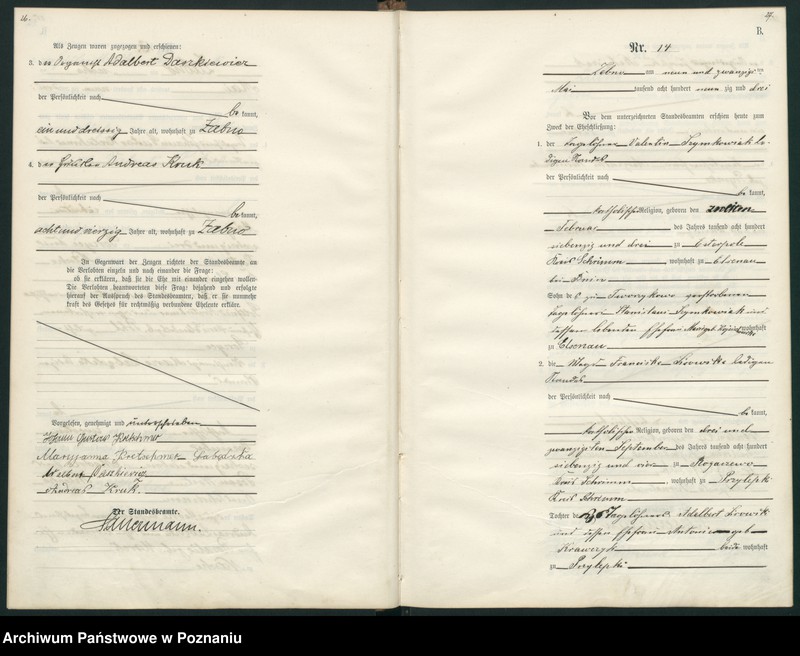 26.
Als Zeugen waren zugezogen und erschienen:
3. der Organist Adalbert Daszkiewicz
der Persönlichkeit nach
be kannt,
ein und dreissig Jahre alt, wohnhaft zu Zabno
4. der Häusler Andreas Kruk
der Persönlichkeit nach
be kannt,
acht und vierzig Jahre alt, wohnhaft zu Zabno
In Gegenwart der Zeugen richtete der Standesbeamte an
die Verlobten einzeln und nach einander die Frage:
ob sie erklären, daß sie die Ehe mit einander eingehen wollen.
Die Verlobten beantworteten diese Frage bejahend und erfolgte
hierauf der Ausspruch des Standesbeamten, daß er sie nunmehr
kraft des Gesetzes für rechtmäßig verbundene Eheleute erkläre.
Vorgelesen, genehmigt und unterschrieben
Hans Gustav
Maryanna
Andreas Kruk.
Der Standesbeamte.
27.
B.
Nr. 14
Zabno am neun und zwanzigsten
Mai tausend acht hundert neun zig und drei
Vor dem unterzeichneten Standesbeamten erschien heute zum
Zweck der Eheschließung:
1. der Tagelöhner Valentin Szymkowiak le-
digen Standes
der Persönlichkeit nach
be kannt,
katholischer Religion, geboren den zweiten
Februar des Jahres tausend acht hundert
siebenzig und drei zu
Kreis Schrimm, wohnhaft zu Elsenau
bei
Sohn des zu verstorbenen
Tagelöhners Stanislaus Szymkowiak und
dessen lebenden Ehefrau wohnhaft
zu Elsenau
2. die Magd Franciska ledigen
Standes
der Persönlichkeit nach
be kannt,
katholischer Religion, geboren den drei und
zwanzigsten September des Jahres tausend acht hundert
siebenzig und vier zu Rogaczewo
Kreis Schrimm, wohnhaft zu Przylepki
Kreis Schrimm
Tochter des Tagelöhners Adalbert
und dessen Ehefrau Antonie geb.
Krawczyk beide wohnhaft
zu Przylepki
Archiwum Państwowe w Poznaniu